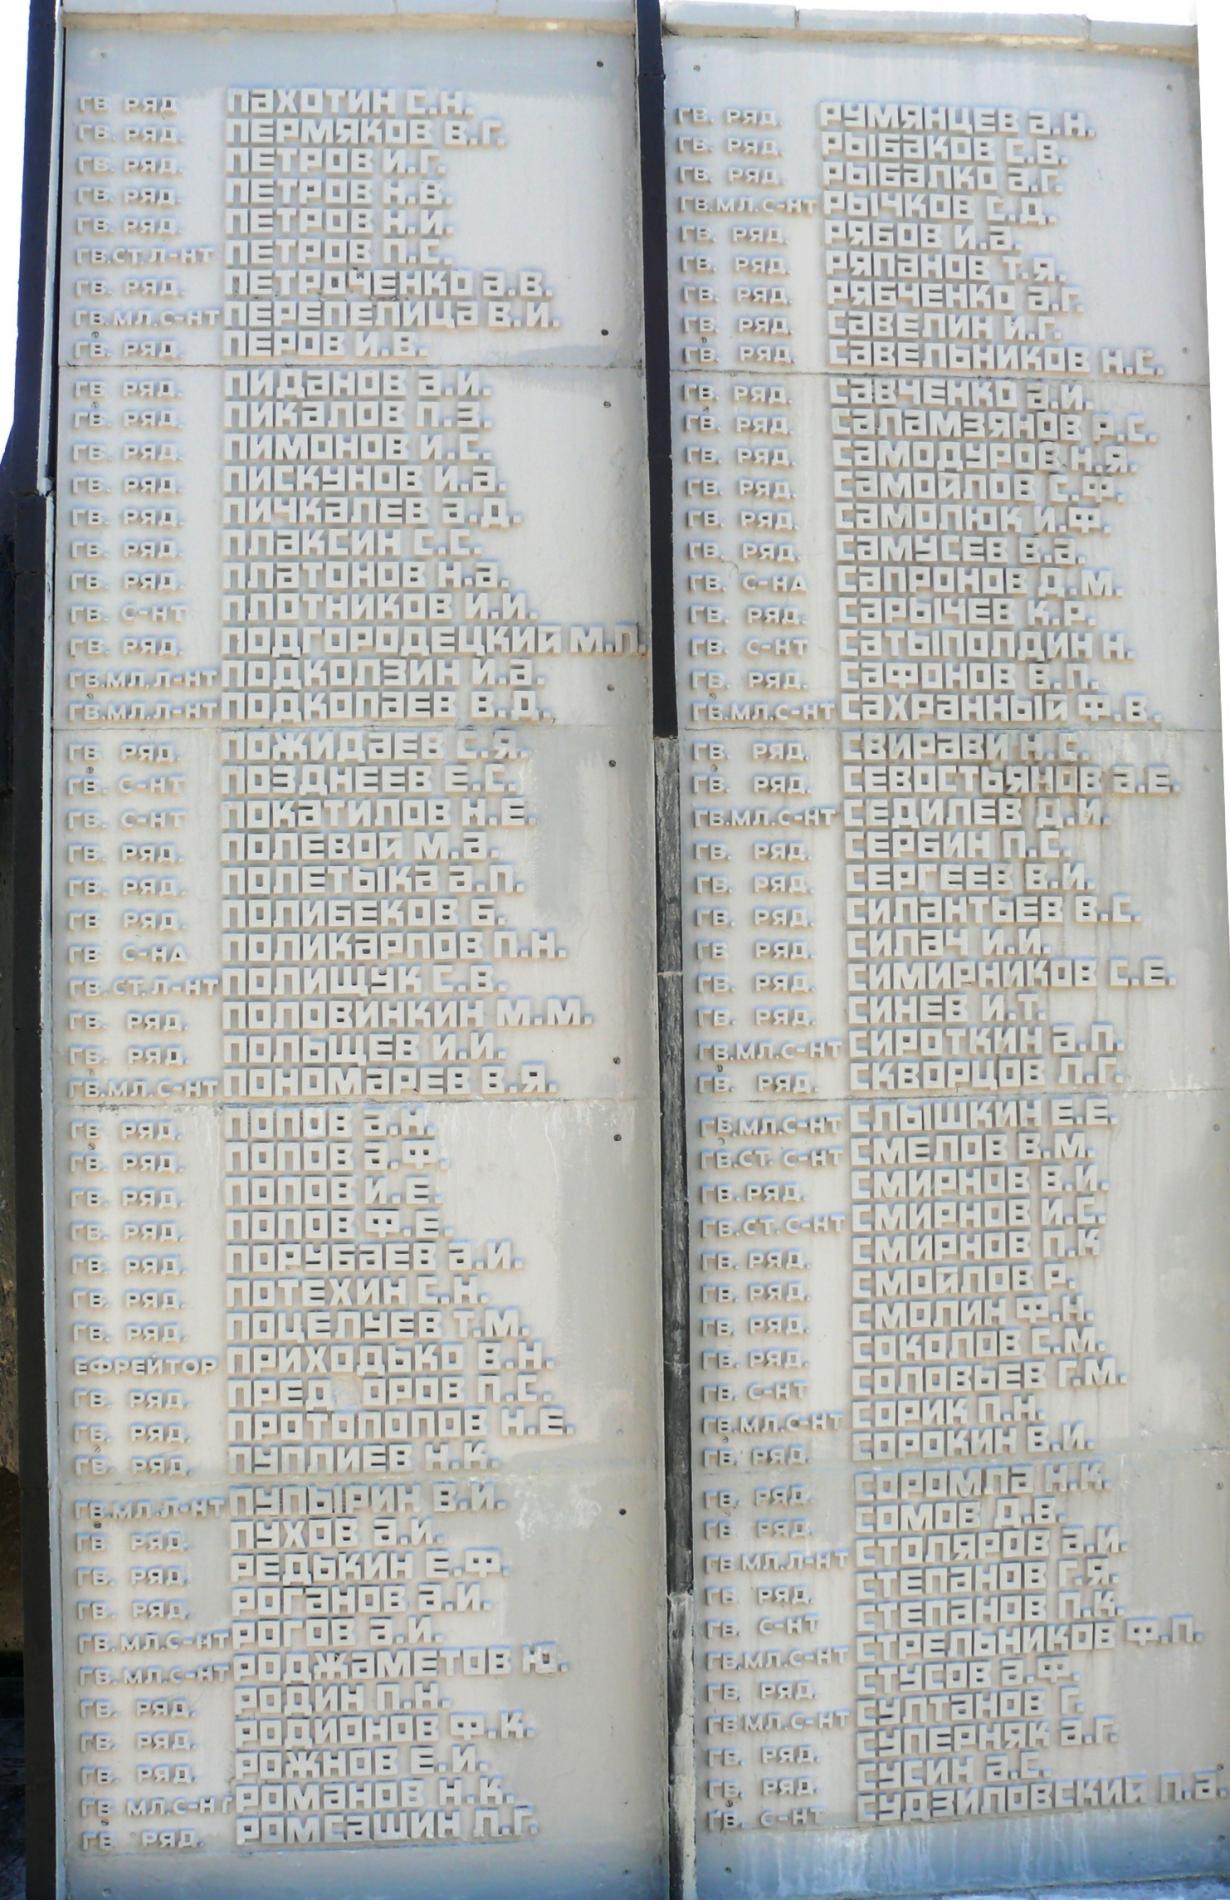 ГВ. РЯД. ПАХОТИН С.Н.
ГВ. РЯД. ПЕРМЯКОВ В.Г.
ГВ. РЯД. ПЕТРОВ И.Г.
ГВ. РЯД. ПЕТРОВ Н.В.
ГВ. РЯД. ПЕТРОВ Н.И.
ГВ.СТ.Л-НТ ПЕТРОВ П.С.
ГВ. РЯД. ПЕТРОЧЕНКО А.В.
ГВ.МЛ.С-НТ ПЕРЕПЕЛИЦА В.И.
ГВ. РЯД. ПЕРОВ И.В.
ГВ. РЯД. ПИДАНОВ А.И.
ГВ. РЯД. ПИКАЛОВ П.З.
ГВ. РЯД. ПИМОНОВ И.С.
ГВ. РЯД. ПИСКУНОВ И.А.
ГВ. РЯД. ПИЧКАЛЕВ А.Д.
ГВ. РЯД. ПЛАКСИН С.С.
ГВ. РЯД. ПЛАТОНОВ Н.А.
ГВ. С-НТ ПЛОТНИКОВ И.И.
ГВ. РЯД. ПОДГОРОДЕЦКИЙ М.П.
ГВ.МЛ.Л-НТ ПОДКОЛЗИН И.А.
ГВ.МЛ.Л-НТ ПОДКОПАЕВ В.Д.
ГВ. РЯД. ПОЖИДАЕВ С.Я.
ГВ. С-НТ ПОЗДНЕЕВ Е.С.
ГВ. С-НТ ПОКАТИЛОВ Н.Е.
ГВ. РЯД. ПОЛЕВОЙ М.А.
ГВ. РЯД. ПОЛЕТЫКА А.П.
ГВ. РЯД. ПОЛИБЕКОВ Б.
ГВ С-НА ПОЛИКАРПОВ П.Н.
ГВ.СТ.Л-НТ ПОЛИЩУК С.В.
ГВ. РЯД. ПОЛОВИНКИН М.М.
ГВ. РЯД. ПОЛЬЩЕВ И.И.
ГВ.МЛ.С-НТ ПОНОМАРЕВ В.Я.
ГВ РЯД. ПОПОВ А.Н.
ГВ. РЯД. ПОПОВ А.Ф.
ГВ. РЯД. ПОПОВ И.Е.
ГВ. РЯД. ПОПОВ Ф.Е.
ГВ. РЯД. ПОРУБАЕВ А.И.
ГВ. РЯД. ПОТЕХИН С.Н.
ГВ. РЯД. ПОЦЕЛУЕВ Т.М.
ЕФРЕЙТОР ПРИХОДЬКО В.Н.
ГВ. РЯД. ПРЕД ОРОВ П.С.
ГВ. РЯД. ПРОТОПОПОВ Н.Е.
ГВ. РЯД. ПУПЛИЕВ Н.К.
ГВ.МЛ.Л-НТ ПУПЫРИН В.И.
ГВ РЯД. ПУХОВ А.И.
ГВ. РЯД. РЕДЬКИН Е.Ф.
ГВ. РЯД. РОГАНОВ А.И.
ГВ.МЛ.С-НТ РОГОВ А.И.
ГВ.МЛ.С-НТ РОДЖАМЕТОВ Ю.
ГВ. РЯД. РОДИН П.Н.
ГВ. РЯД. РОДИОНОВ Ф.К.
ГВ. РЯД. РОЖНОВ Е.И.
ГВ МЛ.С-НТ РОМАНОВ Н.К.
ГВ. РЯД. РОМСАШИН Л.Г.
ГВ. РЯД. РУМЯНЦЕВ А.Н.
ГВ. РЯД. РЫБАКОВ С.В.
ГВ. РЯД. РЫБАЛКО А.Г.
ГВ.МЛ.С-НТ РЫЧКОВ С.Д.
ГВ. РЯД. РЯБОВ И.А.
ГВ. РЯД. РЯПАНОВ Т.Я.
ГВ. РЯД. РЯБЧЕНКО А.Г.
ГВ. РЯД. САВЕЛИН И.Г.
ГВ. РЯД. САВЕЛЬНИКОВ Н.С.
ГВ. РЯД. САВЧЕНКО А.И.
ГВ. РЯД. САЛАМЗЯНОВ Р.С.
ГВ. РЯД. САМОДУРОВ Н.Я.
ГВ. РЯД. САМОЙЛОВ С.Ф.
ГВ. РЯД. САМОЛЮК И.Ф.
ГВ. РЯД. САМУСЕВ В.А.
ГВ. С-НА САПРОНОВ Д.М.
ГВ. РЯД. САРЫЧЕВ К.Р.
ГВ. С-НТ САТЫПОЛДИН Н.
ГВ. РЯД. САФОНОВ В.П.
ГВ.МЛ.С-НТ САХРАННЫЙ Ф.В.
ГВ. РЯД. СВИРАВИ Н.С.
ГВ. РЯД. СЕВОСТЬЯНОВ А.Е.
ГВ.МЛ.С-НТ СЕДИЛЕВ Д.И.
ГВ. РЯД. СЕРБИН П.С.
ГВ. РЯД. СЕРГЕЕВ В.И.
ГВ. РЯД. СИЛАНТЬЕВ В.С.
ГВ РЯД. СИЛАЧ И.И.
ГВ. РЯД. СИМИРНИКОВ С.Е.
ГВ. РЯД. СИНЕВ И.Т.
ГВ.МЛ.С-НТ СИРОТКИН А.П.
ГВ. РЯД. СКВОРЦОВ Л.Г.
ГВ.МЛ.С-НТ СЛЫШКИН Е.Е.
ГВ.СТ. С-НТ СМЕЛОВ В.М.
ГВ. РЯД. СМИРНОВ В.И.
ГВ.СТ.С-НТ СМИРНОВ И.С.
ГВ. РЯД. СМИРНОВ П.К
ГВ. РЯД. СМОЙЛОВ Р.
ГВ. РЯД. СМОЛИН Ф.Н.
ГВ. РЯД. СОКОЛОВ С.М.
ГВ. С-НТ СОЛОВЬЕВ Г.М.
ГВ.МЛ.С-НТ СОРИК П.Н.
ГВ. РЯД. СОРОКИН В.И.
ГВ. РЯД. СОРОМЛА Н.К.
ГВ. РЯД. СОМОВ Д.В.
ГВ МЛ.Л-НТ СТОЛЯРОВ А.И.
ГВ. РЯД. СТЕПАНОВ Г.Я.
ГВ. С-НТ СТЕПАНОВ П.К.
ГВ.МЛ.С-НТ СТРЕЛЬНИКОВ Ф.П.
ГВ. РЯД. СТУСОВ А.Ф.
ГВ МЛ.С-НТ СУЛТАНОВ Г.
ГВ. РЯД. СУПЕРНЯК А.Г.
ГВ. РЯД. СУСИН А.С.
ГВ. С-НТ СУДЗИЛОВСКИЙ П.А.